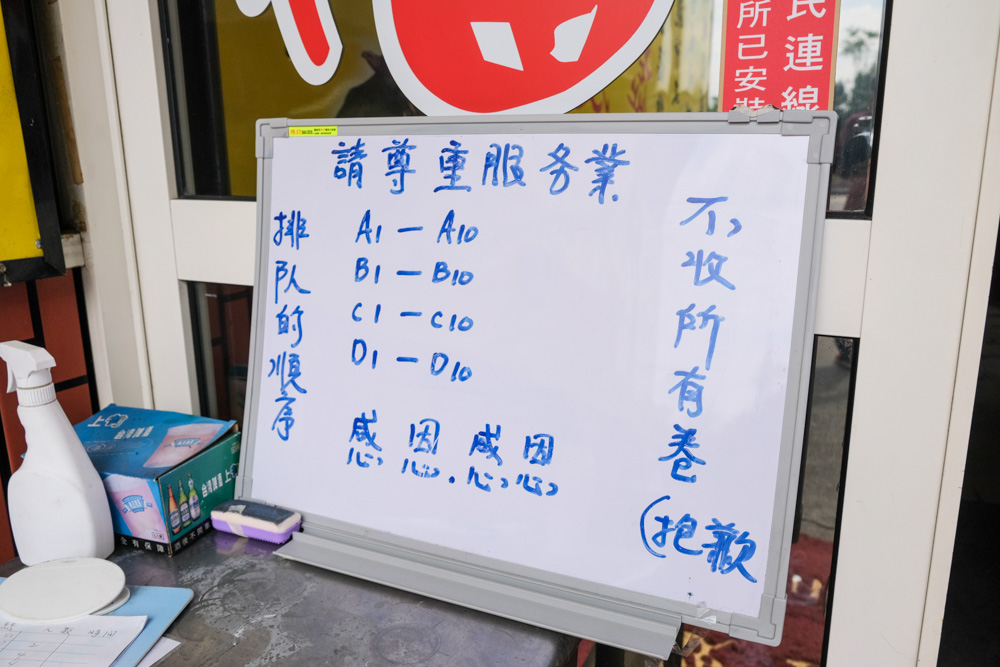 請尊重服务業
排队的順序
A1 — A10
B1 — B10
C1 — C10
D1 — D10
感恩.感恩
不收所有卷
(抱歉
民連線
所已安裝
台灣啤酒
人數 時間